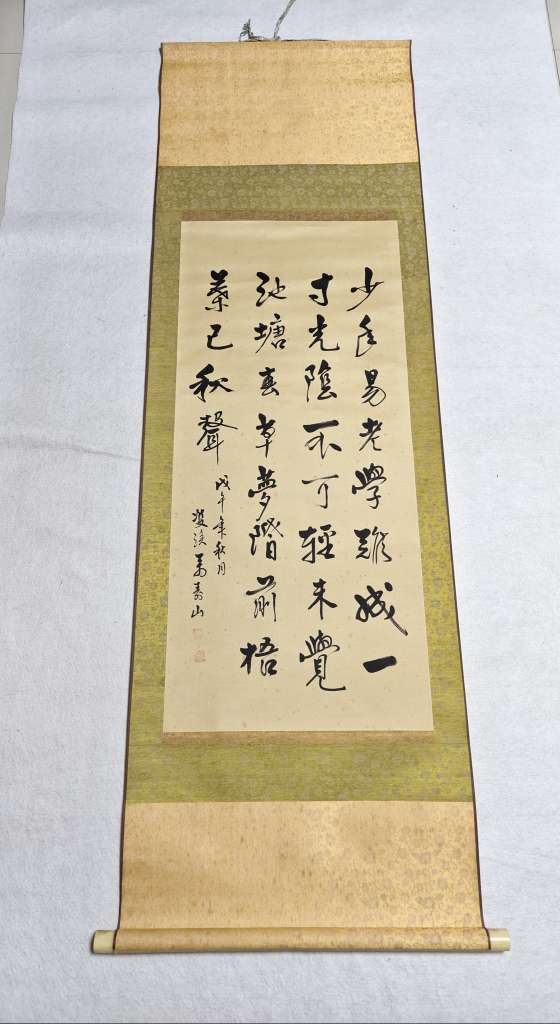 少年易老學難成一
寸光陰不可輕未覺
池塘春草夢階前梧
葉已秋聲
戊午年秋月
雙溪 壽山